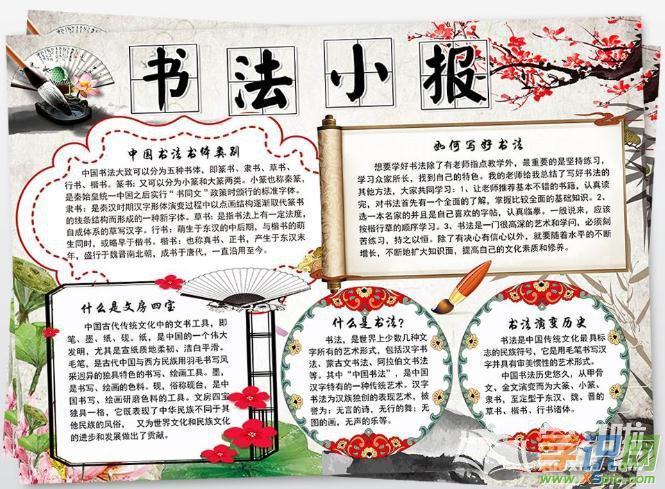 书法小报
中国书法书体类别
中国书法大致可以分为五种书体，即篆书、隶书、草书、
行书、楷书。篆书：又可以分为小篆和大篆两类。小篆也称秦篆，
是秦始皇统一中国之后实行“书同文”政策时颁行的标准字体。
隶书：是秦汉时期汉字形体演变过程中以点画结构逐渐取代篆书
的线条结构而形成的一种新字体。草书：是指书法上有一定法度，
自成体系的草写汉字。行书：萌生于东汉的中后期，与楷书的萌
生同时，或略早于楷书。楷书：也称真书、正书，产生于东汉末
年，盛行于魏晋南北朝，成书于唐代，一直沿用至今。
如何写好书法
想要学好书法除了有老师指点教学外，最重要的是坚持练习，
学习众家所长，找到自己的特色。我的老师给我总结了写好书法的
其他方法，大家共同学习：1、让老师推荐基本不错的书籍，认真读
完，对书法首先有一个全面的了解，掌握比较全面的基础知识。2、
选一本名家的并且是自己喜欢的字帖，认真临摹。一般说来，应该
按楷行草的顺序学习。3、书法是一门很高深的艺术和学问，必须刻
苦练习，持之以恒。除了有决心有信心以外，就要随着水平的不断
增长，不断地扩大知识面，提高自己的文化素质和修养。
什么是文房四宝
中国古代传统文化中的文书工具，即
笔、墨、纸、砚。纸，是中国的一个伟大
发明，尤其是宣纸质地柔韧、洁白平滑。
毛笔，是古代中国与西方民族用羽毛书写风
采迥异的独具特色的书写、绘画工具。墨，
是书写、绘画的色料。砚，俗称砚台，是中
国书写、绘画研磨色料的工具。文房四宝
独具一格，它既表现了中华民族不同于其
他民族的风俗， 又为世界文化和民族文化
的进步和发展做出了贡献。
什么是书法？
书法，是世界上少数几种文
字所有的艺术形式，包括汉字书
法、蒙古文书法、阿拉伯文书法
等。其中“中国书法”，是中国
汉字特有的一种传统艺术。汉字
书法为汉族独创的表现艺术，被
誉为：无言的诗，无行的舞；无
图的画，无声的乐等。
书法演变历史
书法是中国传统文化最具标
志的民族符号，它是用毛笔书写汉
字并具有审美惯性的艺术形式。
中国书法历史悠久，从甲骨
文、金文演变而为大篆、小篆、
隶书，至定型于东汉、魏、晋的
草书、楷书、行书诸体。
学识网
www.XSpic.com